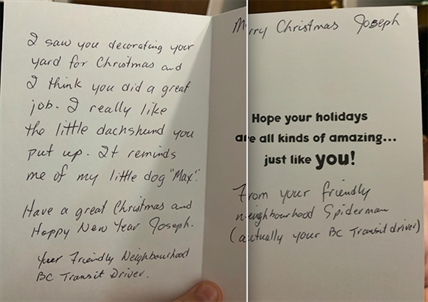 I saw you decorating your
yard for Christmas and
I think you did a great
job. I really like
the little dachshund you
put up. It reminds
me of my little dog "Max".
Have a great Christmas and
Happy New Year Joseph.
Your Friendly Neighbourhood
BC Transit Driver.
Merry Christmas Joseph
Hope your holidays
are all kinds of amazing...
just like you!
From your friendly
neighbourhood Spiderman
(actually your BC Transit driver)